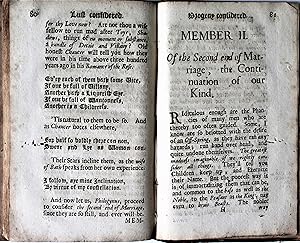 80 Lust considered.
for thy Love now? Are not thou a wise
fellow to run mad after Toys, Sha-
dows, things of no moment or substance,
A bundle of Deceit and Fickary? Old
honest Chaucer will tell you how they
were in his time above three hundred
years ago in his Romance of the Rose.
For each of them hath some Vice,
If one be full of
If one be full of Wantonness,
Another is a Chideress.
'Tis natural to them to be so. And
as Chaucer notes elsewhere,
For half so boldly there can non,
Swere and Lye as Women can.
Their Stars incline them, as the wife
of Bath speaks from her own experience:
I follow, aye mine Inclination,
By virtue of my constellation.
And now let us, Philogynus, proceed to
consider the second end of Marriage,
Since they are so full, and ever will be.
MEM-
Progeny considered. 81
MEMBER II.
Of the Second end of Mar-
riage, the Conti-
nuation of our
Kind.
Ridiculous enough are the Phan-
cies of many men who are
thereby too often guided. Some I
know are so besotted with the desire
of an Off-spring, as they hate
hazards; on hand over head,
quite undoe themselves. The greatest
madness imaginable
Children keep up and Eternize
their Name. But the poorest way is
this of immortalizing them that can be,
and common to the base as well as the
Noble, to the Peasant as the King,
nay
H way